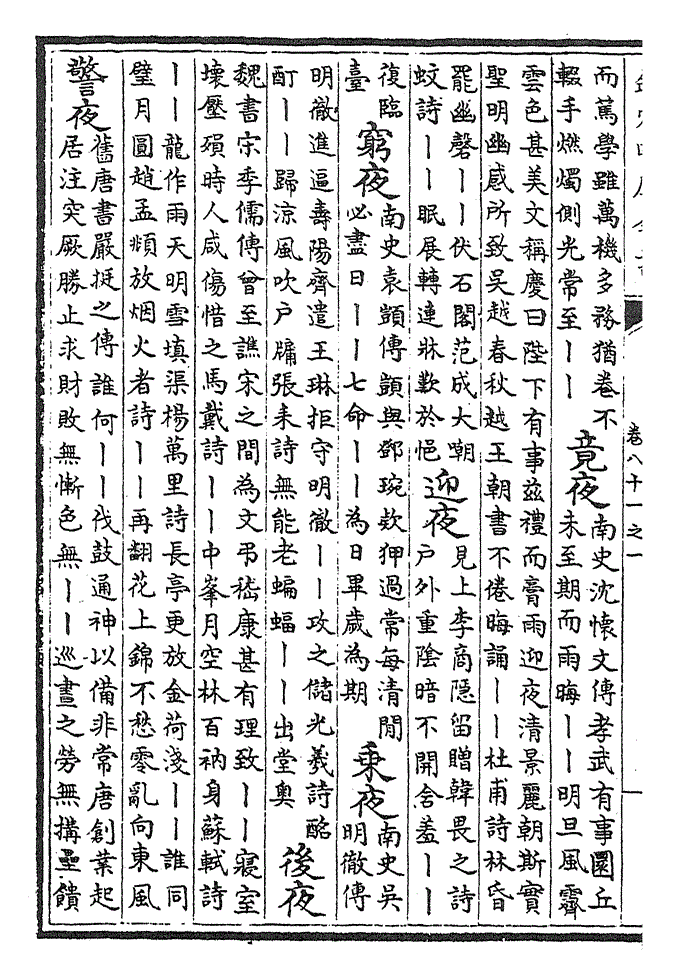 卷八十一之一
而篤學雖萬機多務猶卷不
輟手燃燭側光常至丨丨
竟夜
南史沈懷文傳孝武有事圜丘
未至期而雨晦丨丨明旦風霽
雲色甚美文稱慶曰陛下有事茲禮而膏雨迎夜清景麗朝斯實
聖明幽感所致吳越春秋越王朝書不倦晦誦丨丨杜甫詩林昏
罷幽磬丨丨伏石閣范成大嘲
蚊詩丨丨眠展轉連牀歎於悒
迎夜
見上李商隱留贈韓畏之詩
戶外重陰暗不開含羞丨丨
復臨
臺
窮夜
南史袁顗傳顗與鄧琬款狎過常每清閒
必盡日丨丨七命丨丨為日畢歲為期
乘夜
南史吳
明徹傳
明徹進逼壽陽齊遣王琳拒守明徹丨丨攻之儲光羲詩酩
酊丨丨歸涼風吹戶牖張耒詩無能老蝙蝠丨丨出堂奧
後夜
魏書宋季儒傳曾至譙宋之間為文弔嵇康甚有理致丨丨寢室
壞壓殞時人咸傷惜之馬戴詩丨丨中峯月空林百衲身蘇軾詩
丨丨龍作雨天明雪填渠楊萬里詩長亭更放金荷淺丨丨誰同
璧月圓趙孟頫放烟火者詩丨丨再翻花上錦不愁零亂向東風
警夜
舊唐書嚴挺之傳誰何丨丨伐鼓通神以備非常唐創業起
居注突厥勝止求財敗無慚色無丨丨巡晝之勞無搆壘饋